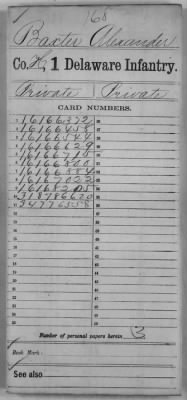 168
Baxter Alexander
Co. K, 1 Delaware Infantry.
Private Private
CARD NUMBERS.
1 16166372
2 16166458
3 16166544
4 16166629
5 16166715
6 16166800
7 16166884
8 16167022
9 16168205
10 318786620
11 34776558
Number of personal papers herein 3
Book Mark:
See also